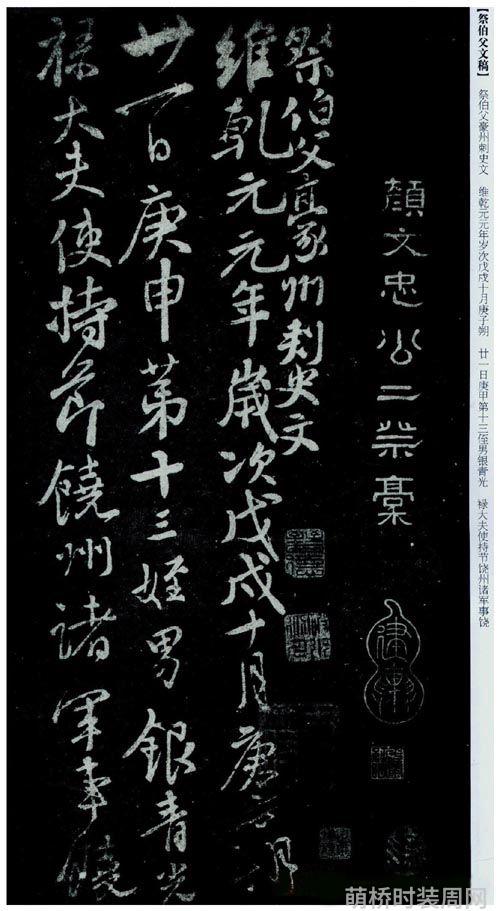 【祭伯父文稿】 祭伯父豪州刺史文 维乾元元年岁次戊戌十月庚子朔 廿一日庚甲第十三侄男银青光 禄大夫使持节饶州诸军事饶
顏文忠公二祭稾
祭伯父豪州刺史文
維乾元元年歲次戊戌十月庚子朔
廿一日庚申第十三姪男銀青光
祿大夫使持節饒州諸軍事饒
萌桥时装周网